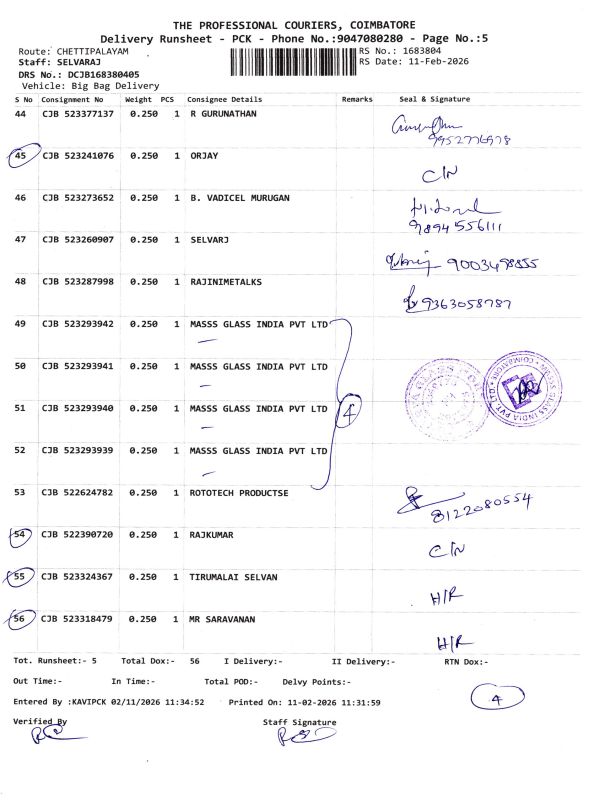 THE PROFESSIONAL COURIERS, COIMBATORE
Delivery Runsheet - PCK - Phone No.:9047080280 - Page No.:5
Route: CHETTIPALAYAM RS No.: 1683804
Staff: SELVARAJ RS Date: 11-Feb-2026
DRS No.: DCJB168380405
Vehicle: Big Bag Delivery
S No Consignment No Weight PCS Consignee Details Remarks Seal & Signature
44 CJB 523377137 0.250 1 R GURUNATHAN
9952776978
45 CJB 523241076 0.250 1 ORJAY C/N
46 CJB 523273652 0.250 1 B. VADICEL MURUGAN
9894556111
47 CJB 523260907 0.250 1 SELVARJ 9003498855
48 CJB 523287998 0.250 1 RAJINIMETALKS 9363058787
49 CJB 523293942 0.250 1 MASSS GLASS INDIA PVT LTD
50 CJB 523293941 0.250 1 MASSS GLASS INDIA PVT LTD
51 CJB 523293940 0.250 1 MASSS GLASS INDIA PVT LTD 4
52 CJB 523293939 0.250 1 MASSS GLASS INDIA PVT LTD
53 CJB 522624782 0.250 1 ROTOTECH PRODUCTSE 8122080554
54 CJB 522390720 0.250 1 RAJKUMAR C/N
55 CJB 523324367 0.250 1 TIRUMALAI SELVAN H/R
56 CJB 523318479 0.250 1 MR SARAVANAN H/R
Tot. Runsheet:- 5 Total Dox:- 56 I Delivery:- II Delivery:- RTN Dox:-
Out Time:- In Time:- Total POD:- Delvy Points:-
Entered By :KAVIPCK 02/11/2026 11:34:52 Printed On: 11-02-2026 11:31:59 4
Verified By Staff Signature